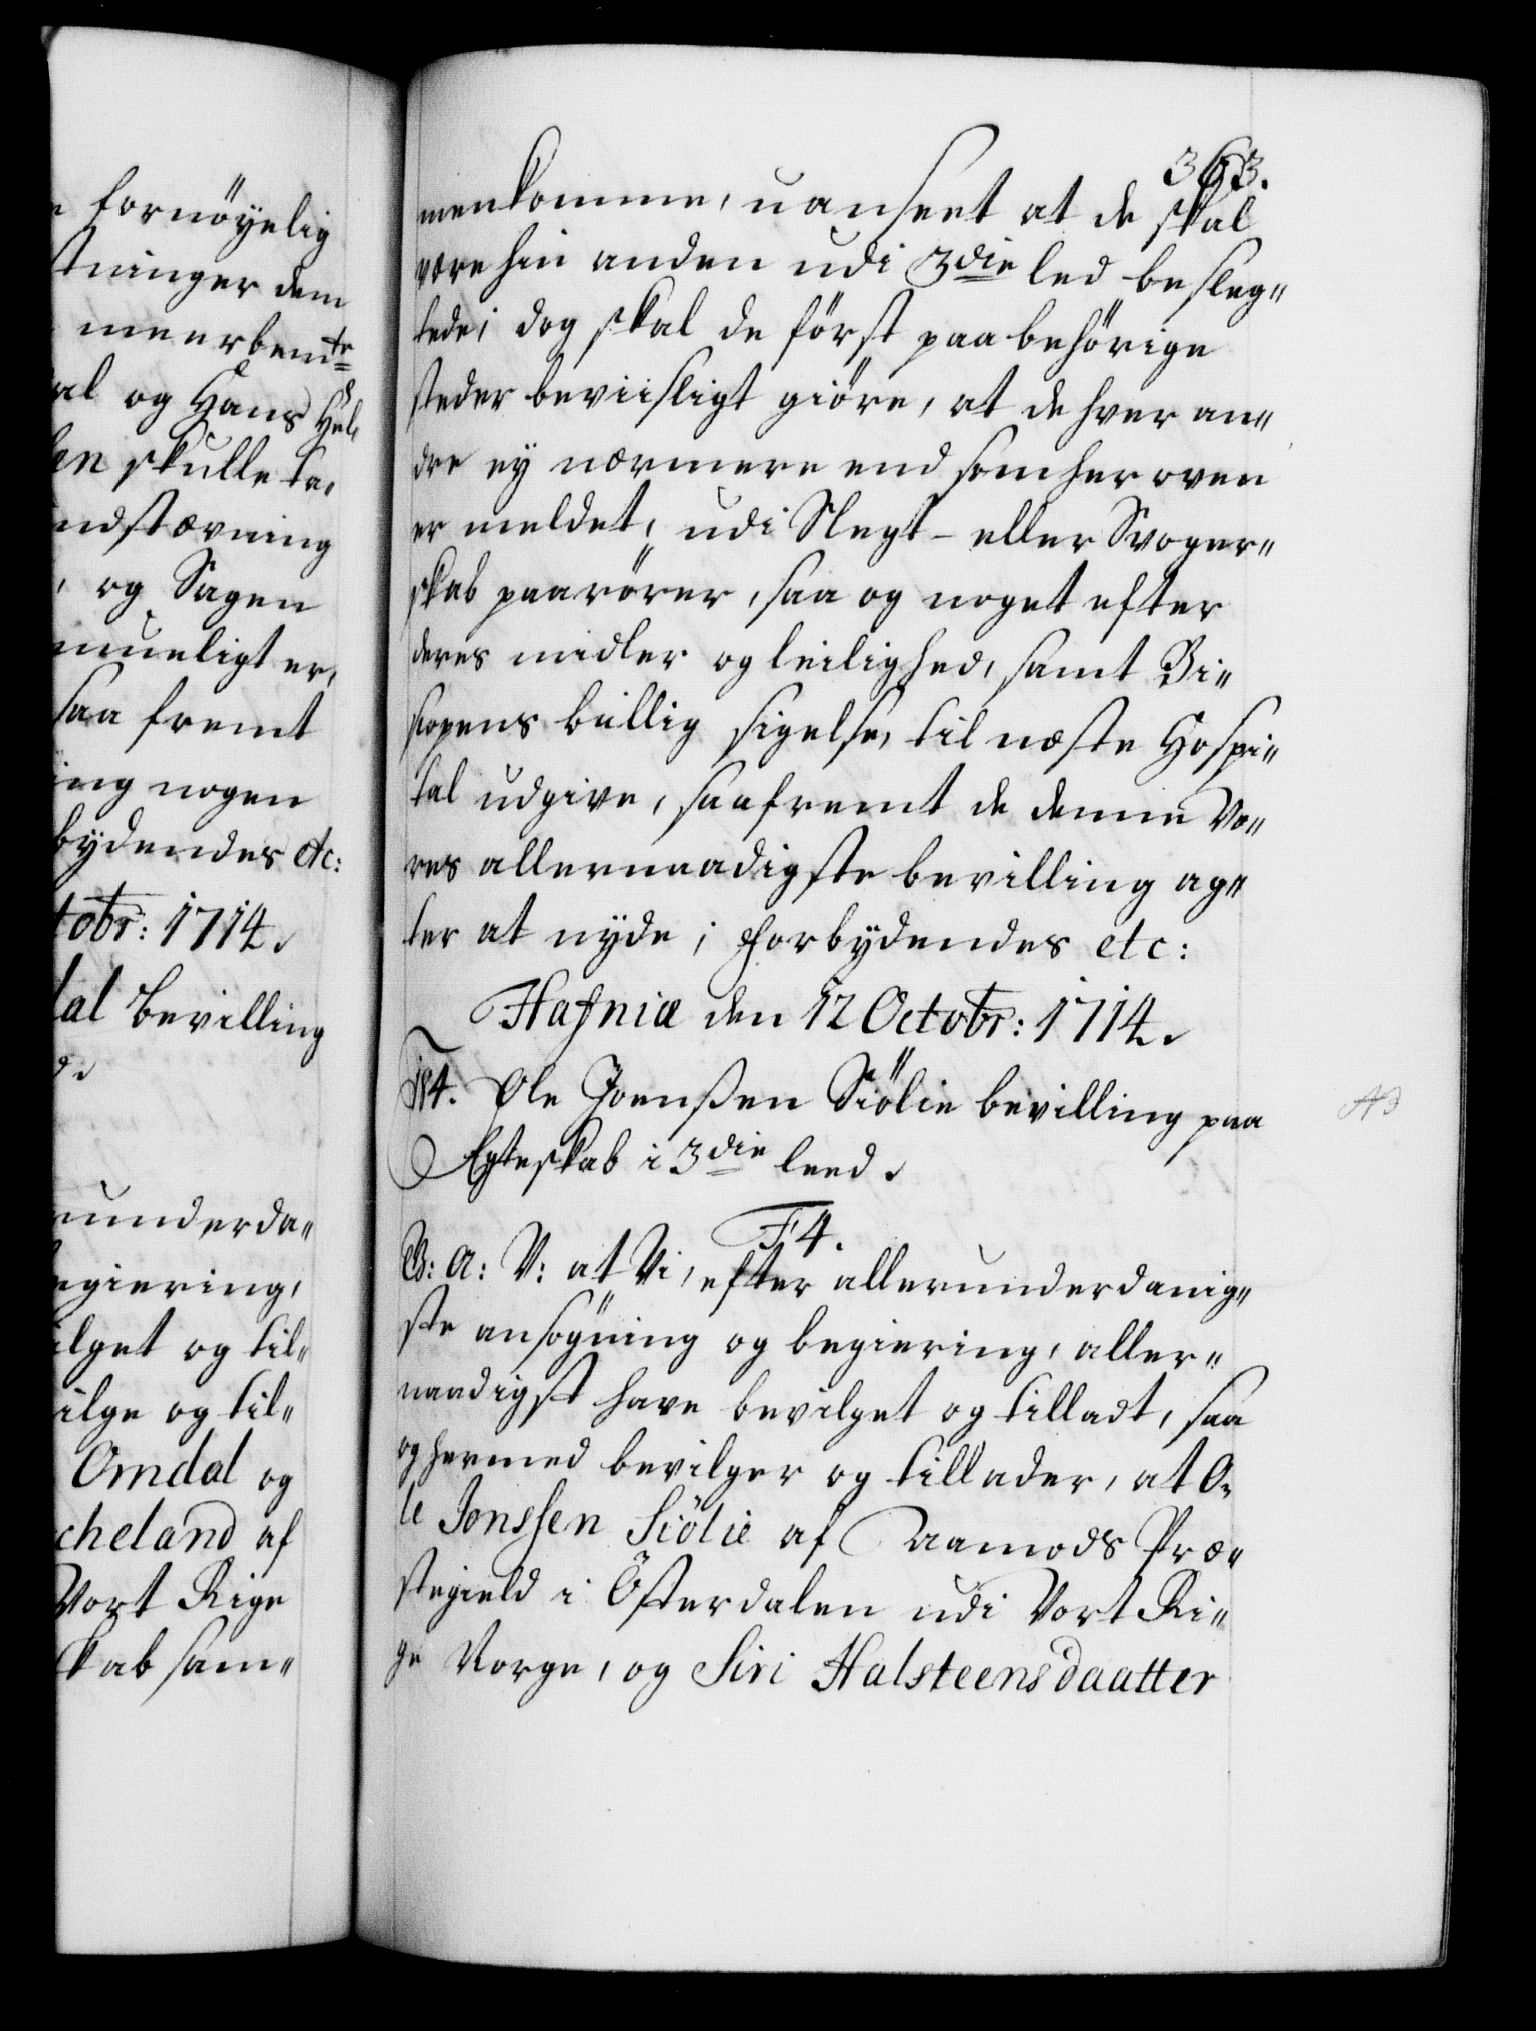 fornöyelig
stninger dem
meerbemte
al og Hans Hel
en skulle ta,
ndstævning
og Sagen
mueligt er,
saa fremt
ing nogen
bydendes etc:
tobr: 1714.
dal Bevilling
d.
runderda„
egiering,
ilget og til„
ilge og til„
Omdal og
cheland af
Vort Rige
skab sam„
363.
menkomme, uanseet at de skal
være hin anden udi 3die led besleg„
tede; dog skal de först paa behörige
steder beviisligt giöre, at de hver an„
dre ey nærmere end som her oven
er meldet, udi Slegt- eller Svoger„
skab paarörer, saa og noget efter
deres midler og leilighed, samt Bi„
scopens billig sigelse, til næste Hospi„
tal udgive, saafremt de denne Vo„
res allernaadigste bevilling ag„
ter at nyde; Forbydendes etc:
Hafniæ den 12 Octobr: 1714.
F4. Ole Joenssen Siölie bevilling paa
Egteskab i 3die leed.
F4.
G: A: V: at Vi, efter allerunderdanig„
ste ansögning og begiering, aller„
naadigst have bevilget og tilladt, saa
og hermed bevilger og tillader, at O„
le Jonssen Siölie af Aamods Præ„
stegield i Österdalen udi Vort Ri„
ge Norge, og Siri Halsteensdaatter